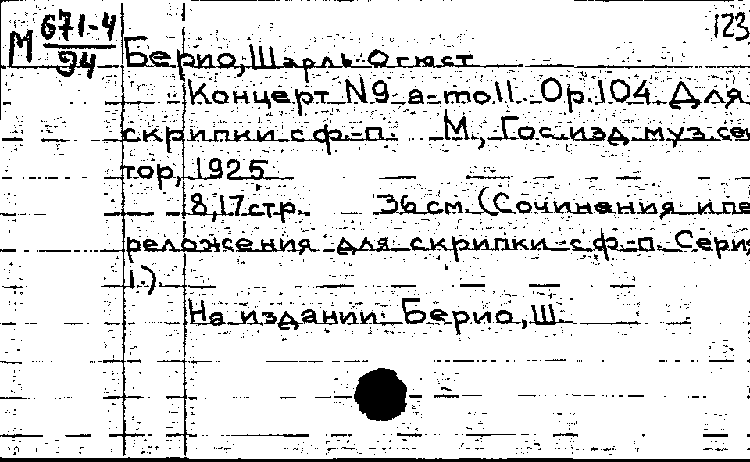 123
М 671-4
94
Берио, Шарль-Огюст
Концерт N9 a-moll. Op.104. Для
скрипки с ф.-п. М., Гос. изд. муз. сек
тор, 1925
8,17 стр. 36 см. (Сочинения и пе
реложения для скрипки с ф.-п. Серия
1.)
На издании: Берио, Ш.